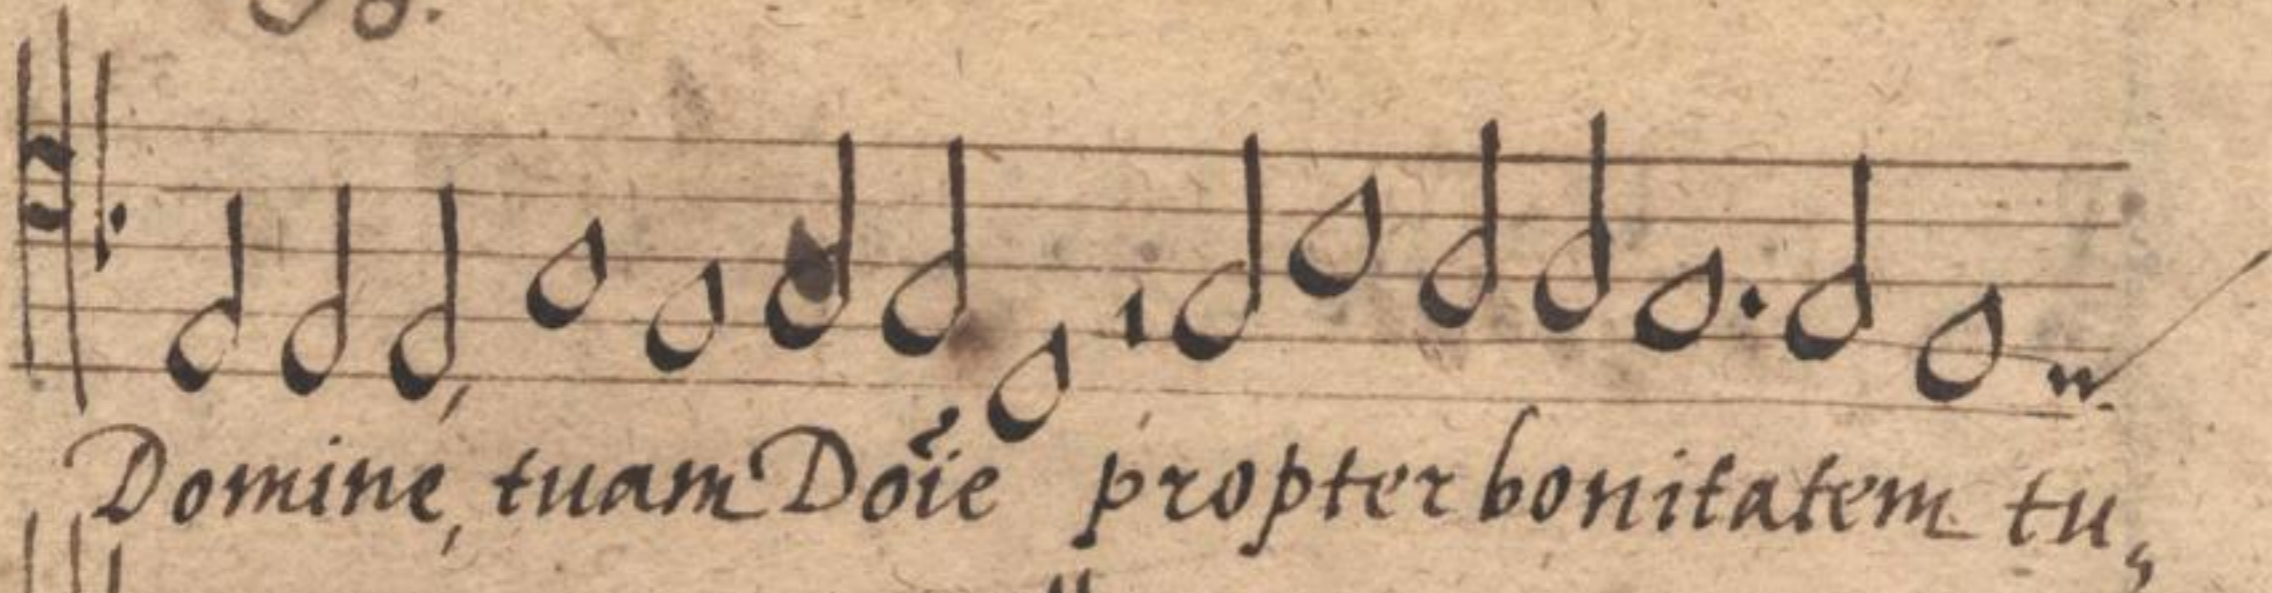 Domine, tuam Doi͂e propter bonitatem tu,,